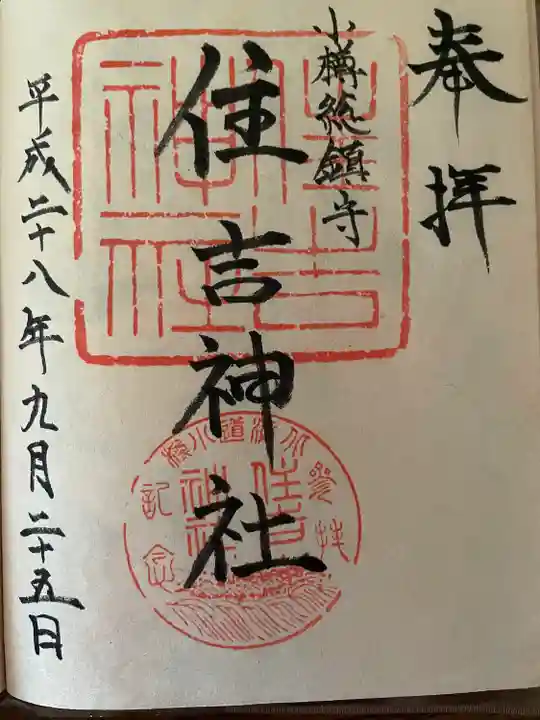 奉拝
小樽総鎮守
住吉神社
平成二十八年九月二十五日
住吉神社
北海道小樽
参拝
住吉神社
記念